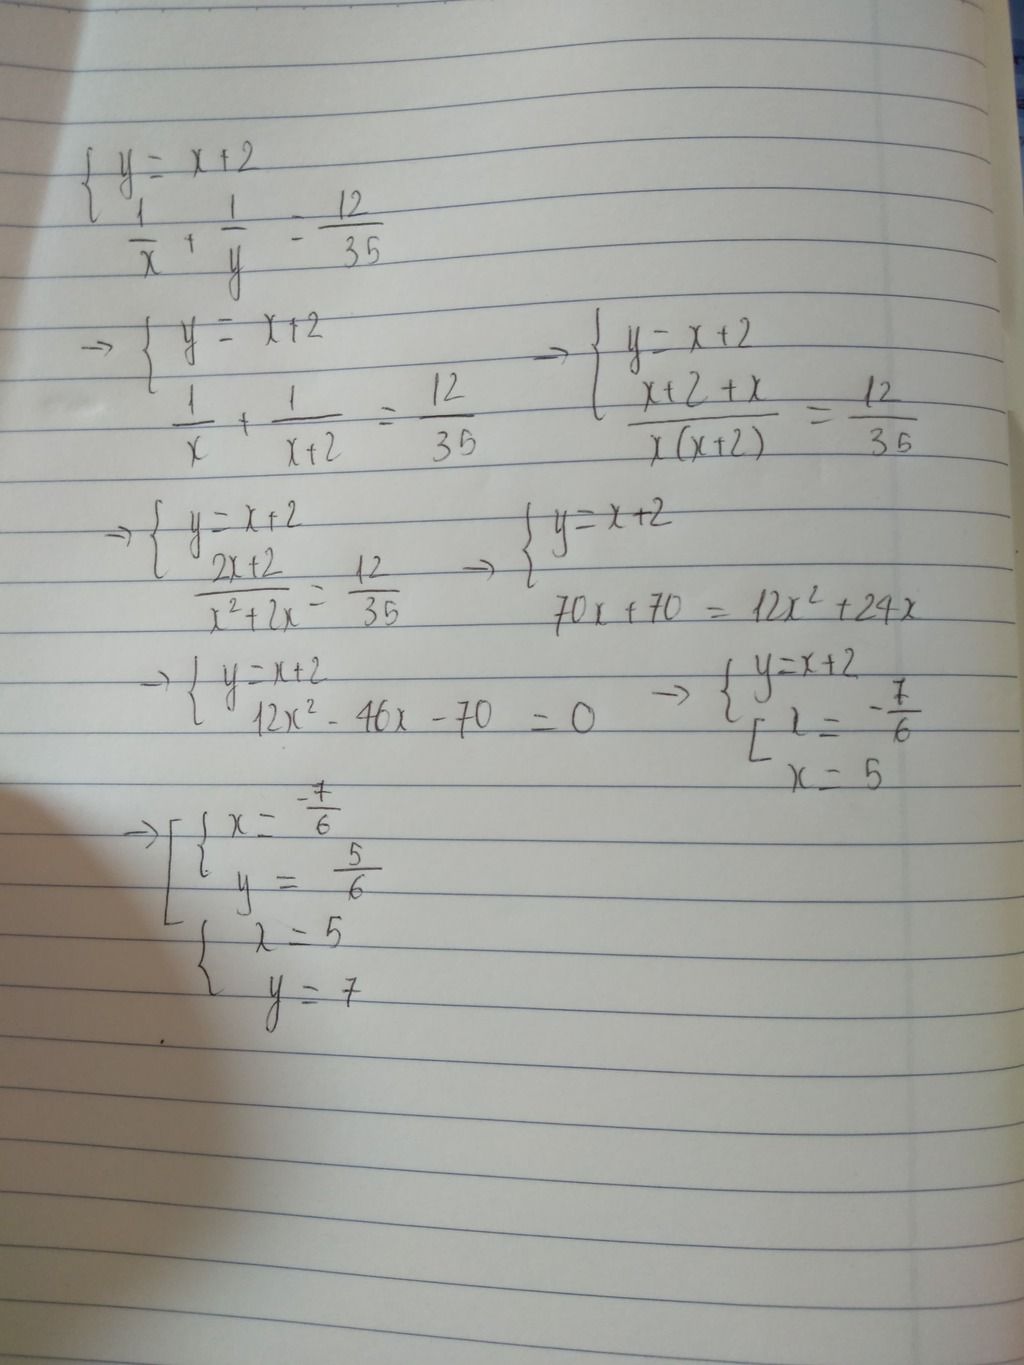 { y = x+2
1/x + 1/y = 12/35
→ { y = x+2
1/x + 1/(x+2) = 12/35
→ { y = x+2
(x+2+x)/(x(x+2)) = 12/35
→ { y = x+2
(2x+2)/(x²+2x) = 12/35
→ { y = x+2
70x + 70 = 12x² + 24x
→ { y = x+2
12x² - 46x - 70 = 0
→ { y = x+2
[ x = -7/6
x = 5
→ [ { x = -7/6
y = 5/6
{ x = 5
y = 7